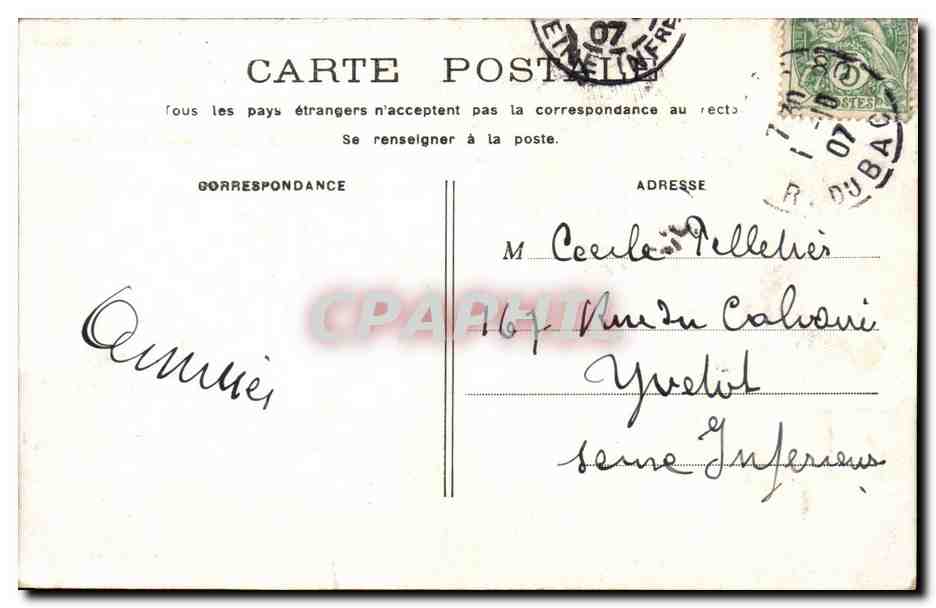 CARTE POSTALE
07
Tous les pays étrangers n'acceptent pas la correspondance au recto
Se renseigner à la poste.
POSTES
10
07
R. DU BAC
CORRESPONDANCE
ADRESSE
M Cecile Pelletier
CPAPHIL
167 Rue du Calvaire
Amitiés
Yvetot
Seine Inferieure